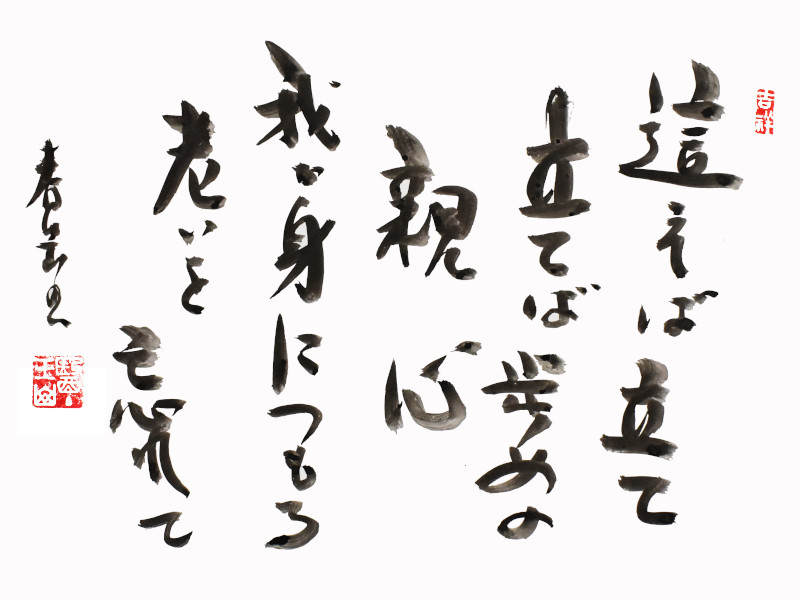 吉祥
這えば立て
立てば歩めの
親心
我が身につもる
老いを
忘れて